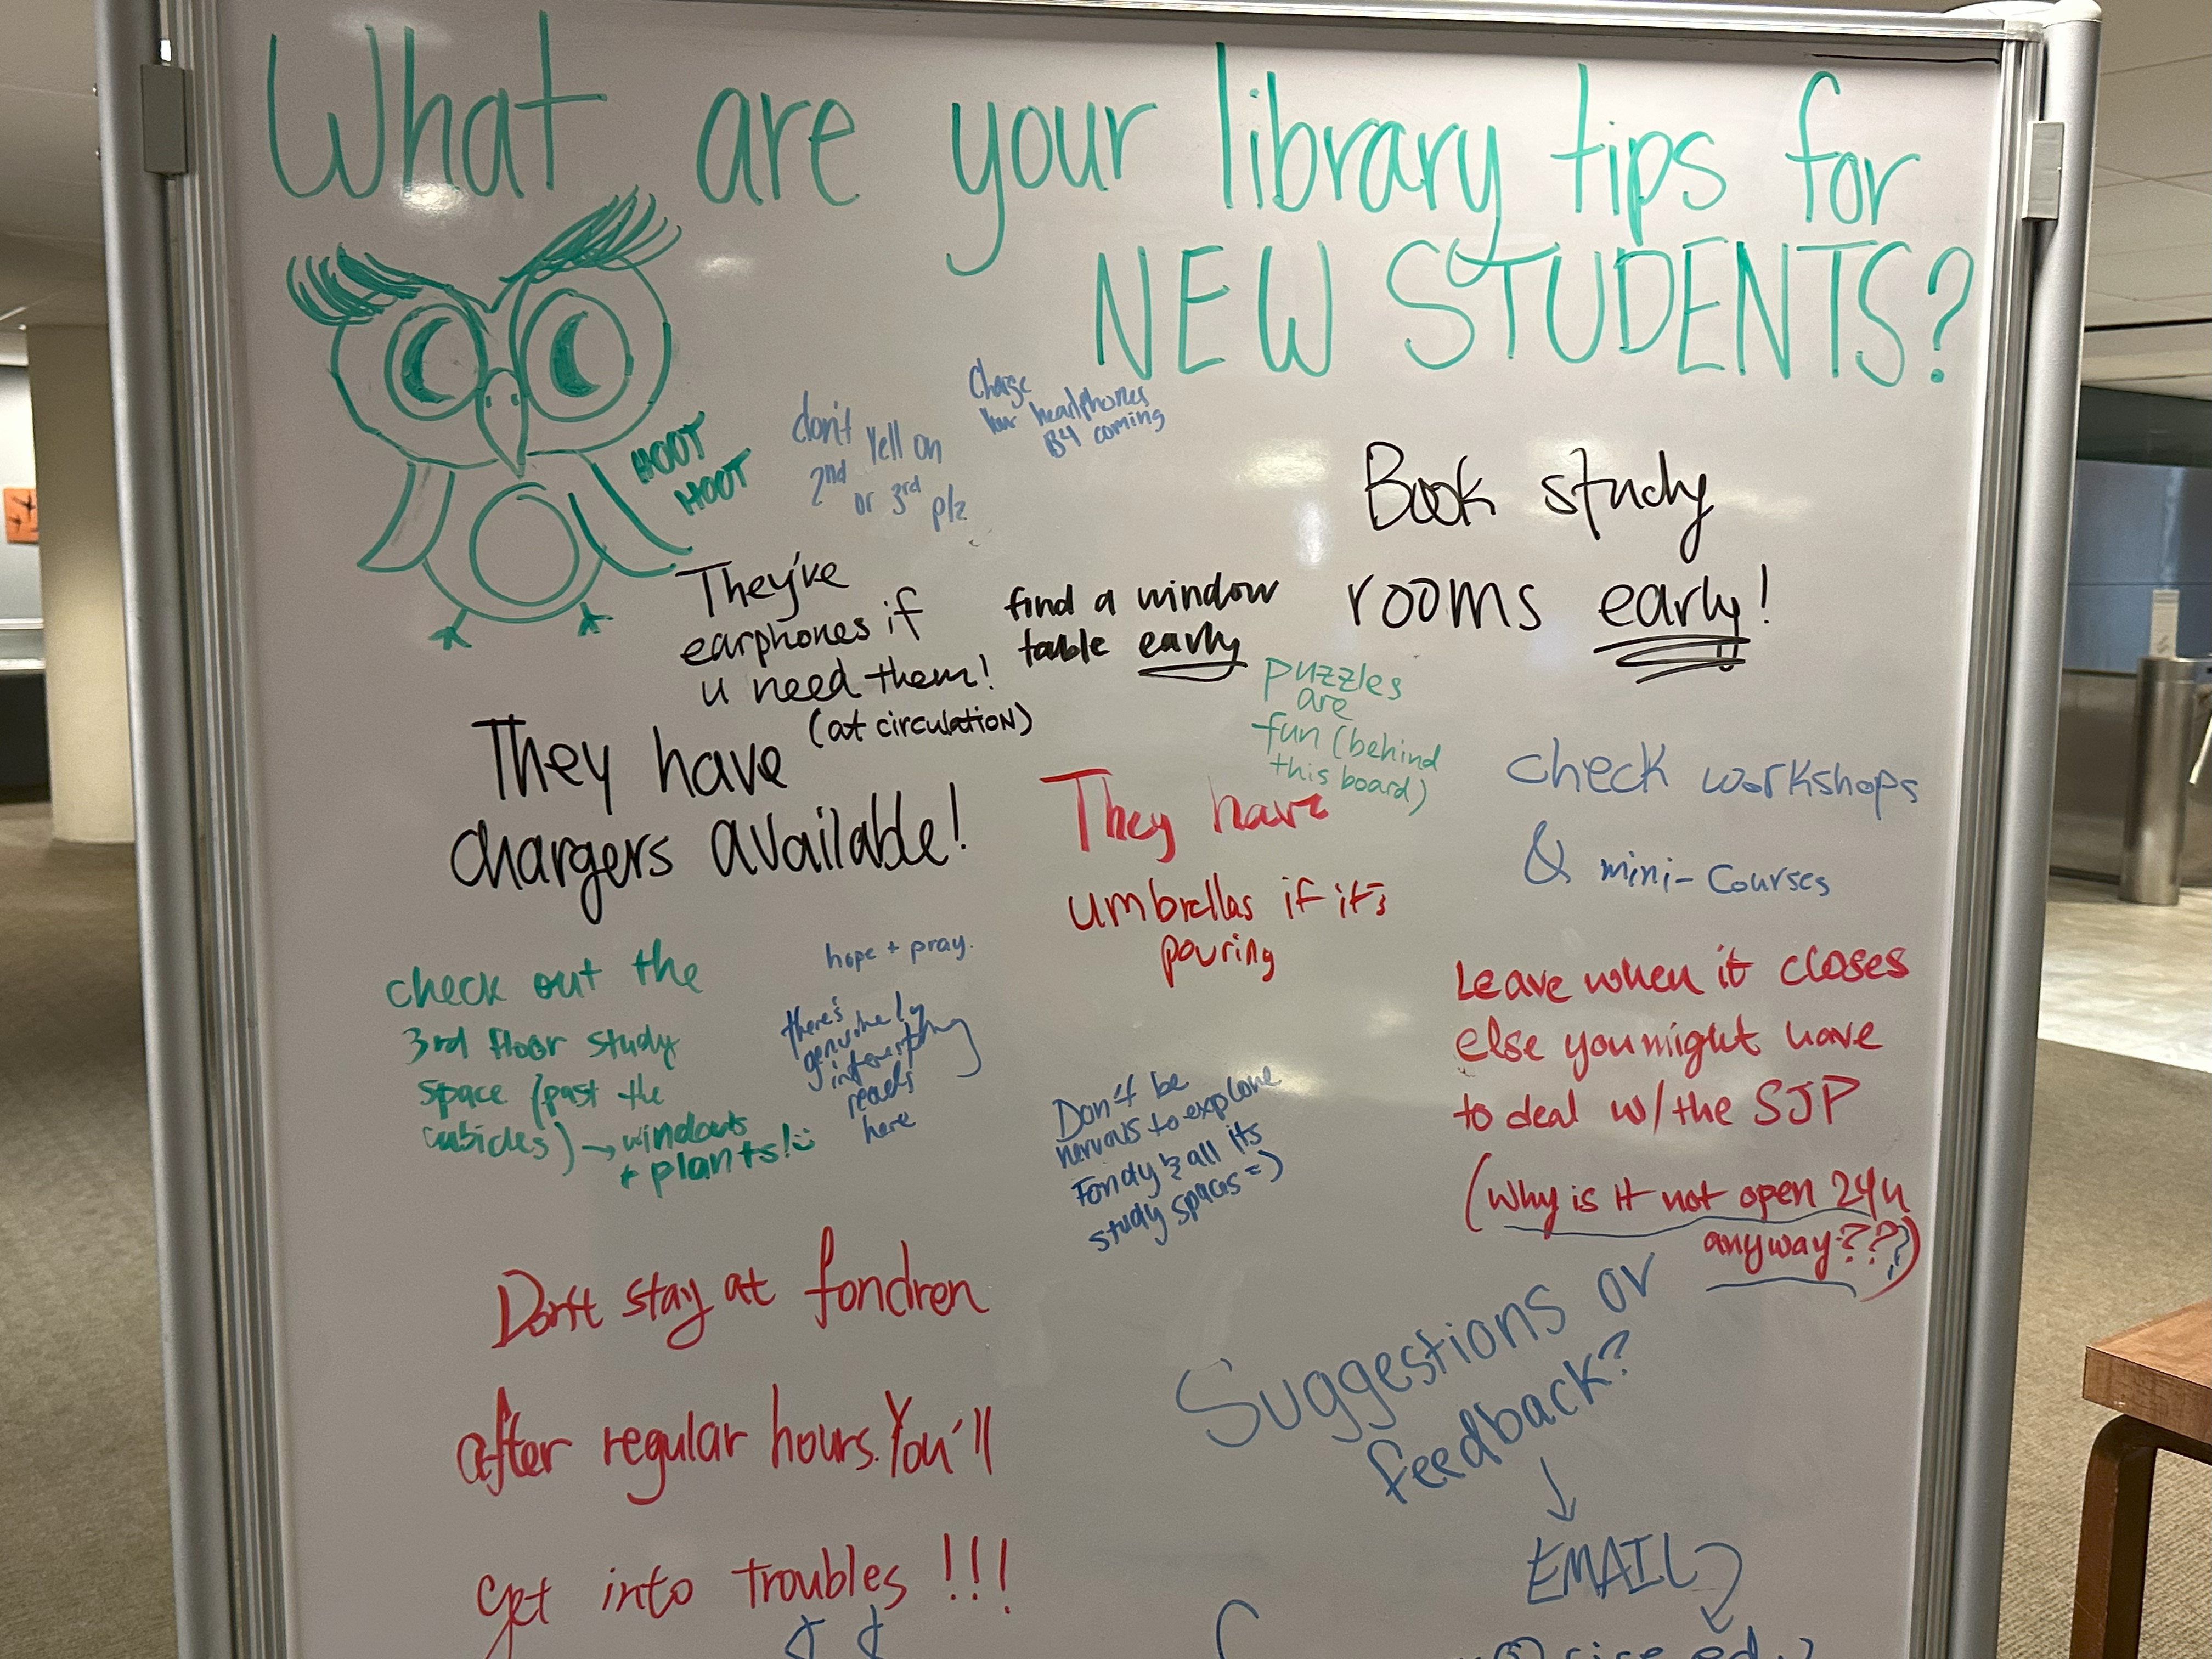 What are your library tips for
NEW STUDENTS?
HOOT
HOOT
don't yell on
2nd or 3rd plz
Charge
ur headphones
B4 coming
Book study
rooms early!
They've
earphones if
u need them!
(at circulation)
find a window
table early
puzzles
are
fun (behind
this board)
They have
chargers available!
They have
umbrellas if it's
pouring
check workshops
& mini-courses
check out the
3rd floor study
space (past the
cubicles) → windows
+ plants!
hope + pray.
there's
genuinely
interesting
reads
here
Don't be
nervous to explore
Fondy & all its
study spaces =)
Leave when it closes
else you might have
to deal w/ the SJP
(Why is it not open 24h
anyway???)
Don't stay at fondren
after regular hours. You'll
get into troubles !!!
Suggestions or
feedback?
↓
EMAIL